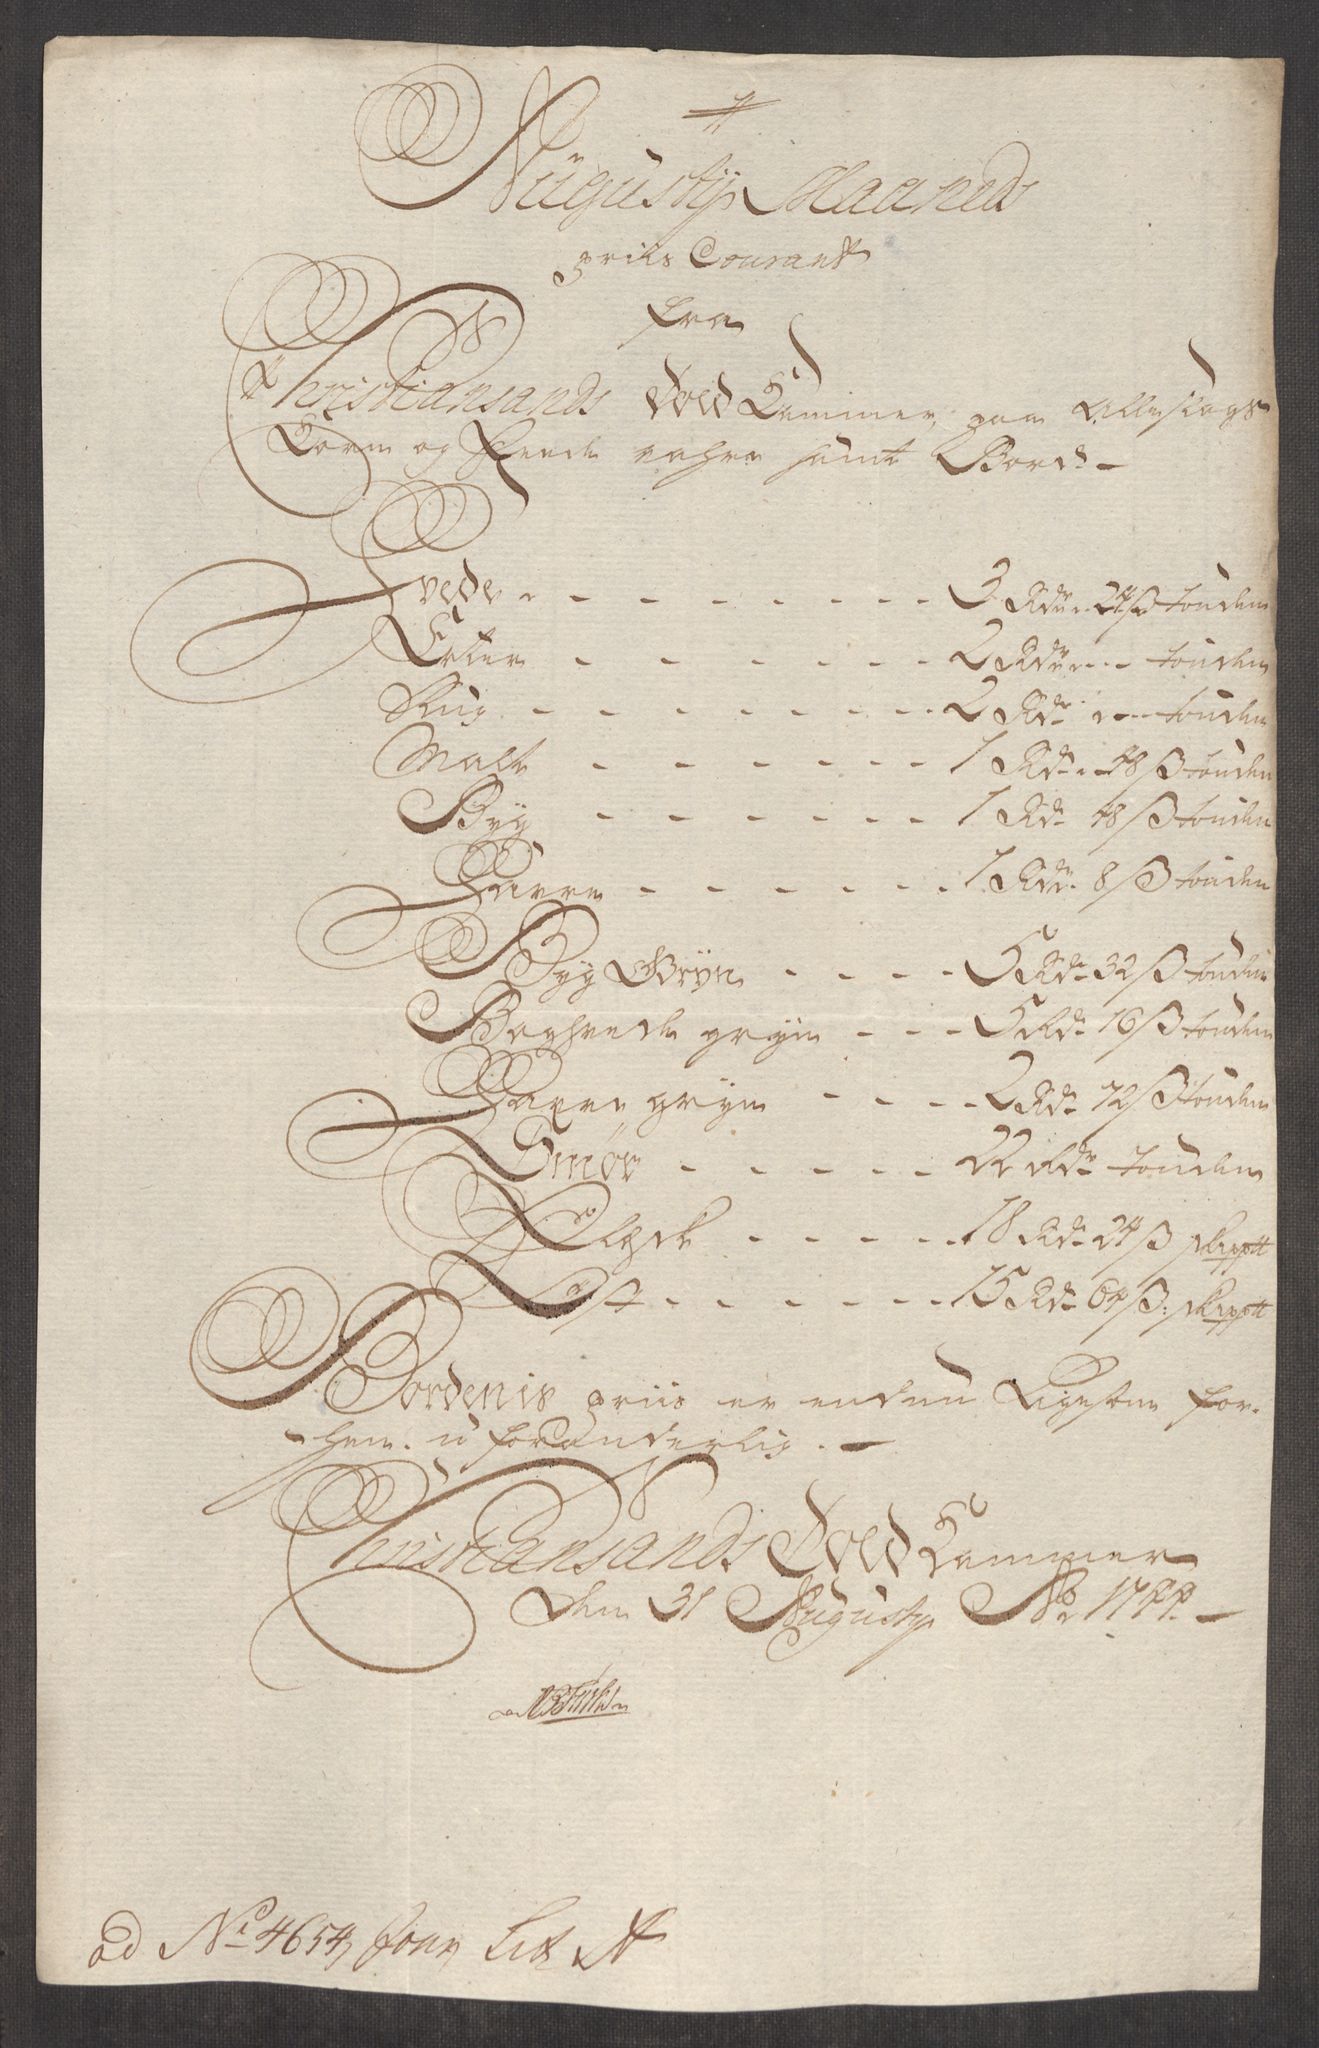 Augustÿ Maaneds
priis Courant
fra
Christiansands Told Kammer, paa Alle slags
Korn og Feede vahre samt Bord.
Hvede - - - - - - - - - 3 Rdr. 24 ß tønden
Erter - - - - - - 2 Rdr. - - tønden
Rug - - - - - - - - 2 Rdr. - - tønden
Malt - - - - - - 1 Rd. 48 ß tønden
Byg - - - - - - 1 Rd. 48 ß tønden
Havre - - - - - - 1 Rdr. 8 ß tønden
Byg Gryn - - - - 5 Rd. 32 ß tønden
Boghvede gryn - - - 5 Rd. 16 ß tønden
Havre gryn - - - - 2 Rd. 72 ß tønden
Smør - - - - - 22 Rdr tønden
Flesk - - - - - 18 Rd. 24 ß skippt
Ost - - - - - - 15 Rd. 64 ß: skippt
Bordenis priis er endnu Ligesom for-
hen. uforanderlig. -
Christiansands Told Kammer
den 31 Augusty Ao 1744. -
ad No 4654 Jour Lit A